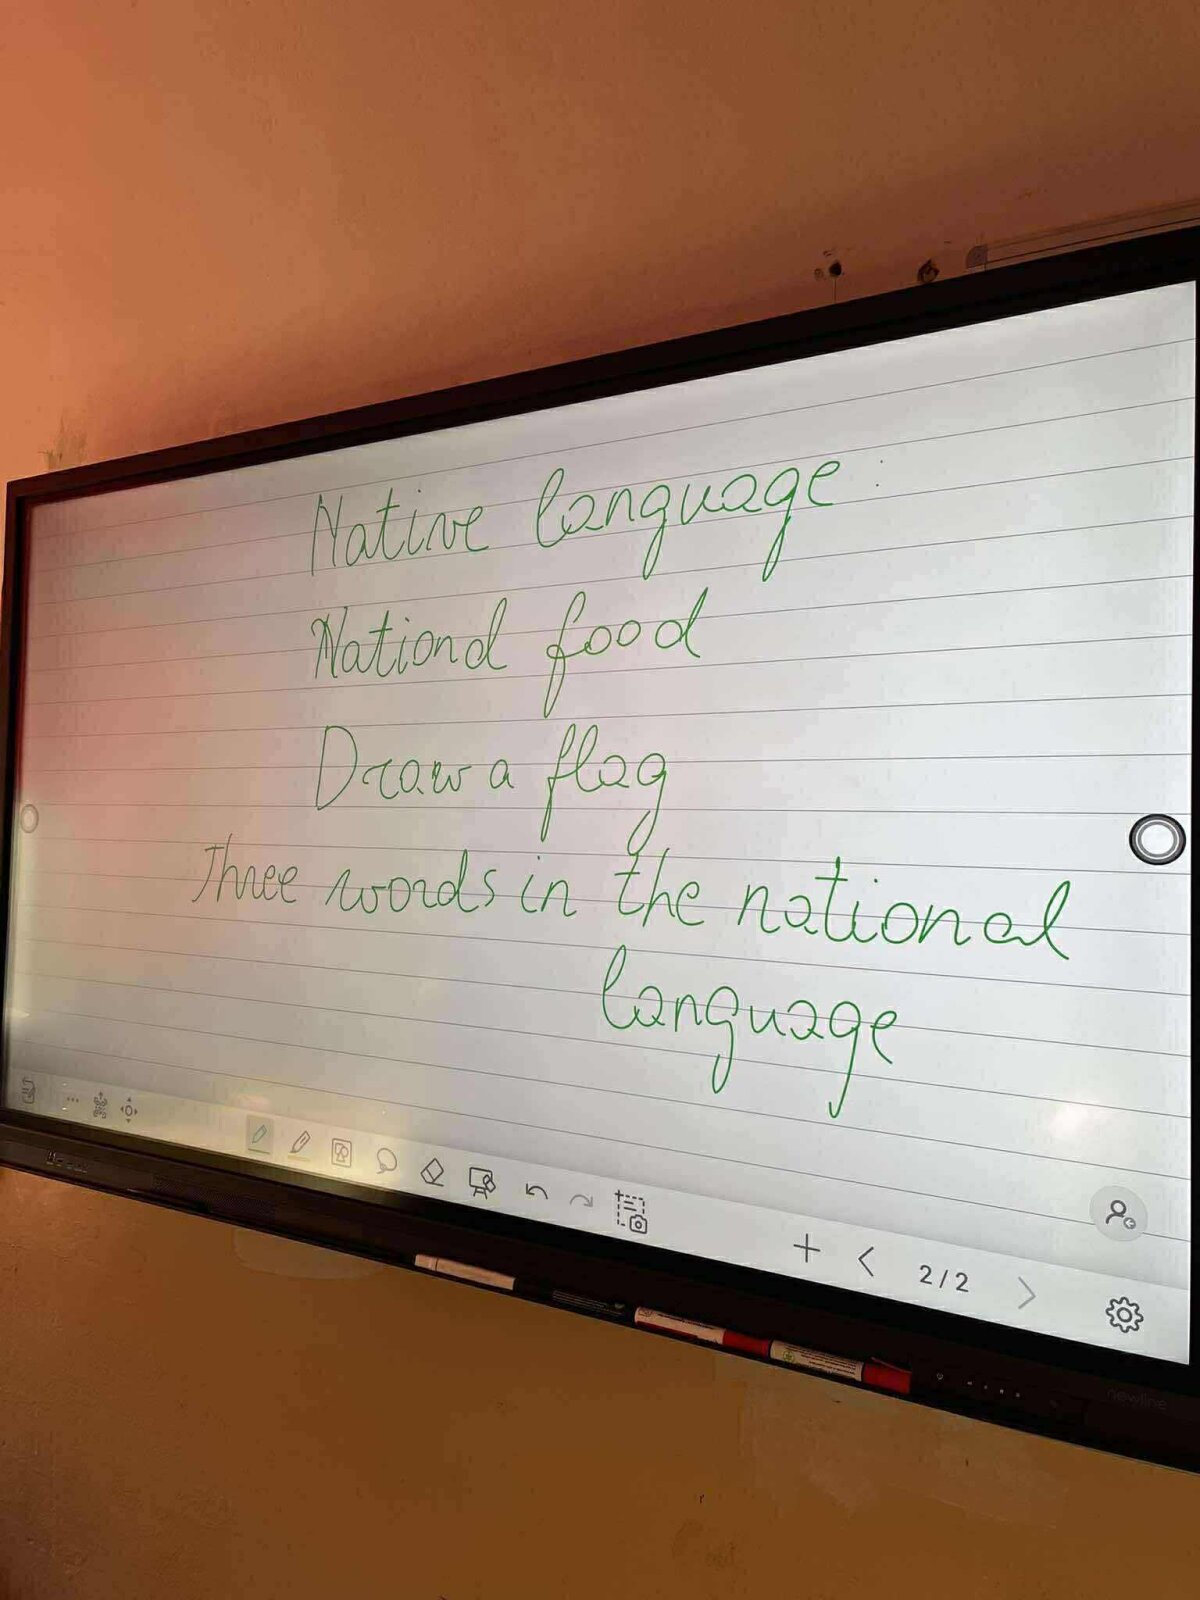 Native language:
National food
Draw a flag
Three words in the national
language
2/2
newline